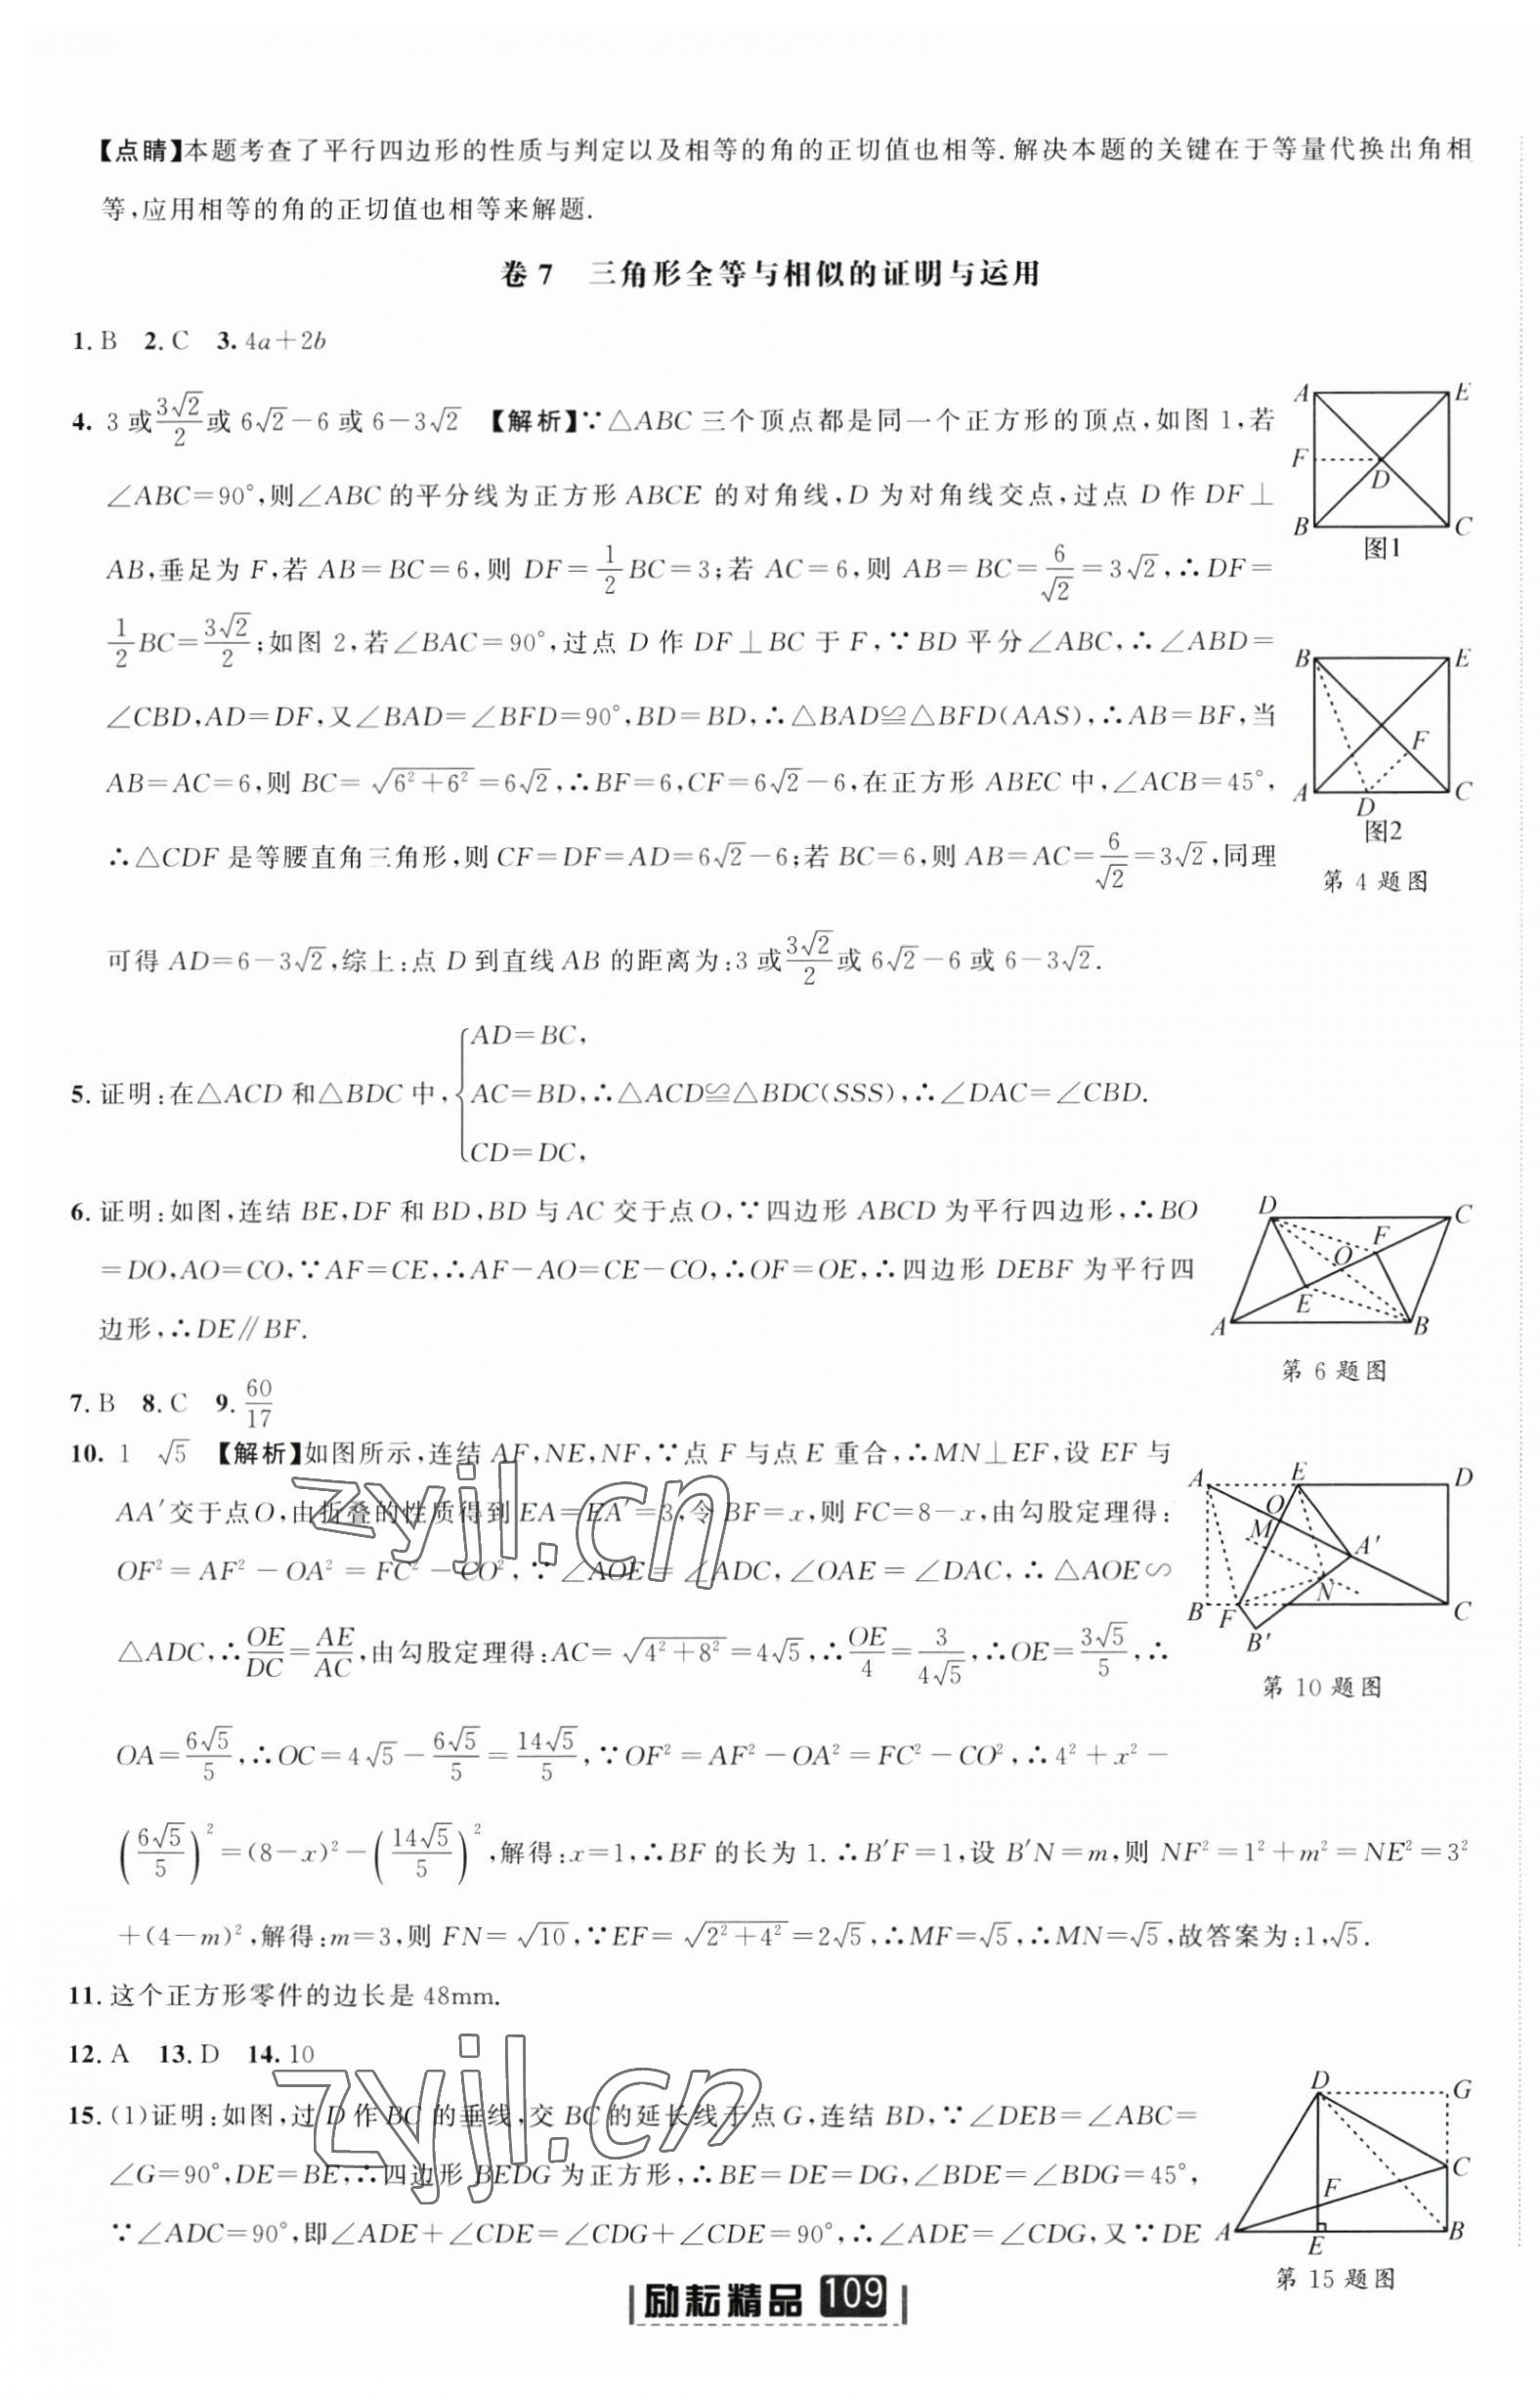 【点睛】本题考查了平行四边形的性质与判定以及相等的角的正切值也相等.解决本题的关键在于等量代换出角相
等,应用相等的角的正切值也相等来解题.
卷7 三角形全等与相似的证明与运用
1. B 2. C 3. 4a+2b
4. 3或3√2/2或6√2-6或6-3√2 【解析】∵△ABC三个顶点都是同一个正方形的顶点,如图1,若
∠ABC=90°,则∠ABC的平分线为正方形ABCE的对角线,D为对角线交点,过点D作DF⊥
AB,垂足为F,若AB=BC=6,则DF=1/2BC=3;若AC=6,则AB=BC=6/√2=3√2,∴DF=
1/2BC=3√2/2;如图2,若∠BAC=90°,过点D作DF⊥BC于F,∵BD平分∠ABC,∴∠ABD=
∠CBD,AD=DF,又∠BAD=∠BFD=90°,BD=BD,∴△BAD≌△BFD(AAS),∴AB=BF,当
AB=AC=6,则BC=√(6²+6²)=6√2,∴BF=6,CF=6√2-6,在正方形ABEC中,∠ACB=45°,
∴△CDF是等腰直角三角形,则CF=DF=AD=6√2-6;若BC=6,则AB=AC=6/√2=3√2,同理
可得AD=6-3√2,综上:点D到直线AB的距离为:3或3√2/2或6√2-6或6-3√2.
A E F D B C
图1
B E F A D C
图2
第4题图
AD=BC,
5. 证明:在△ACD和△BDC中,{AC=BD,∴△ACD≌△BDC(SSS),∴∠DAC=∠CBD.
CD=DC,
6. 证明:如图,连结BE,DF和BD,BD与AC交于点O,∵四边形ABCD为平行四边形,∴BO
=DO,AO=CO,∵AF=CE,∴AF-AO=CE-CO,∴OF=OE,∴四边形DEBF为平行四
边形,∴DE∥BF.
D C F O E A B
第6题图
7. B 8. C 9. 60/17
10. 1 √5 【解析】如图所示,连结AF,NE,NF,∵点F与点E重合,∴MN⊥EF,设EF与
AA′交于点O,由折叠的性质得到EA=EA′=3,令BF=x,则FC=8-x,由勾股定理得:
OF²=AF²-OA²=FC²-CO²,∵∠AOE=∠ADC,∠OAE=∠DAC,∴△AOE∽
△ADC,∴OE/DC=AE/AC,由勾股定理得:AC=√(4²+8²)=4√5,∴OE/4=3/(4√5),∴OE=3√5/5,∴
OA=6√5/5,∴OC=4√5-6√5/5=14√5/5,∵OF²=AF²-OA²=FC²-CO²,∴4²+x²-
(6√5/5)²=(8-x)²-(14√5/5)²,解得:x=1,∴BF的长为1.∴B′F=1,设B′N=m,则NF²=1²+m²=NE²=3²
+(4-m)²,解得:m=3,则FN=√10,∵EF=√(2²+4²)=2√5,∴MF=√5,∴MN=√5,故答案为:1,√5.
A E D O M A′ N B F C B′
第10题图
11. 这个正方形零件的边长是48mm.
12. A 13. D 14. 10
15. (1)证明:如图,过D作BC的垂线,交BC的延长线于点G,连结BD,∵∠DEB=∠ABC=
∠G=90°,DE=BE,∴四边形BEDG为正方形,∴BE=DE=DG,∠BDE=∠BDG=45°,
∵∠ADC=90°,即∠ADE+∠CDE=∠CDG+∠CDE=90°,∴∠ADE=∠CDG,又∵DE
D G C F A E B
第15题图
zyjl.cn
zyjl.cn
励耘精品 109